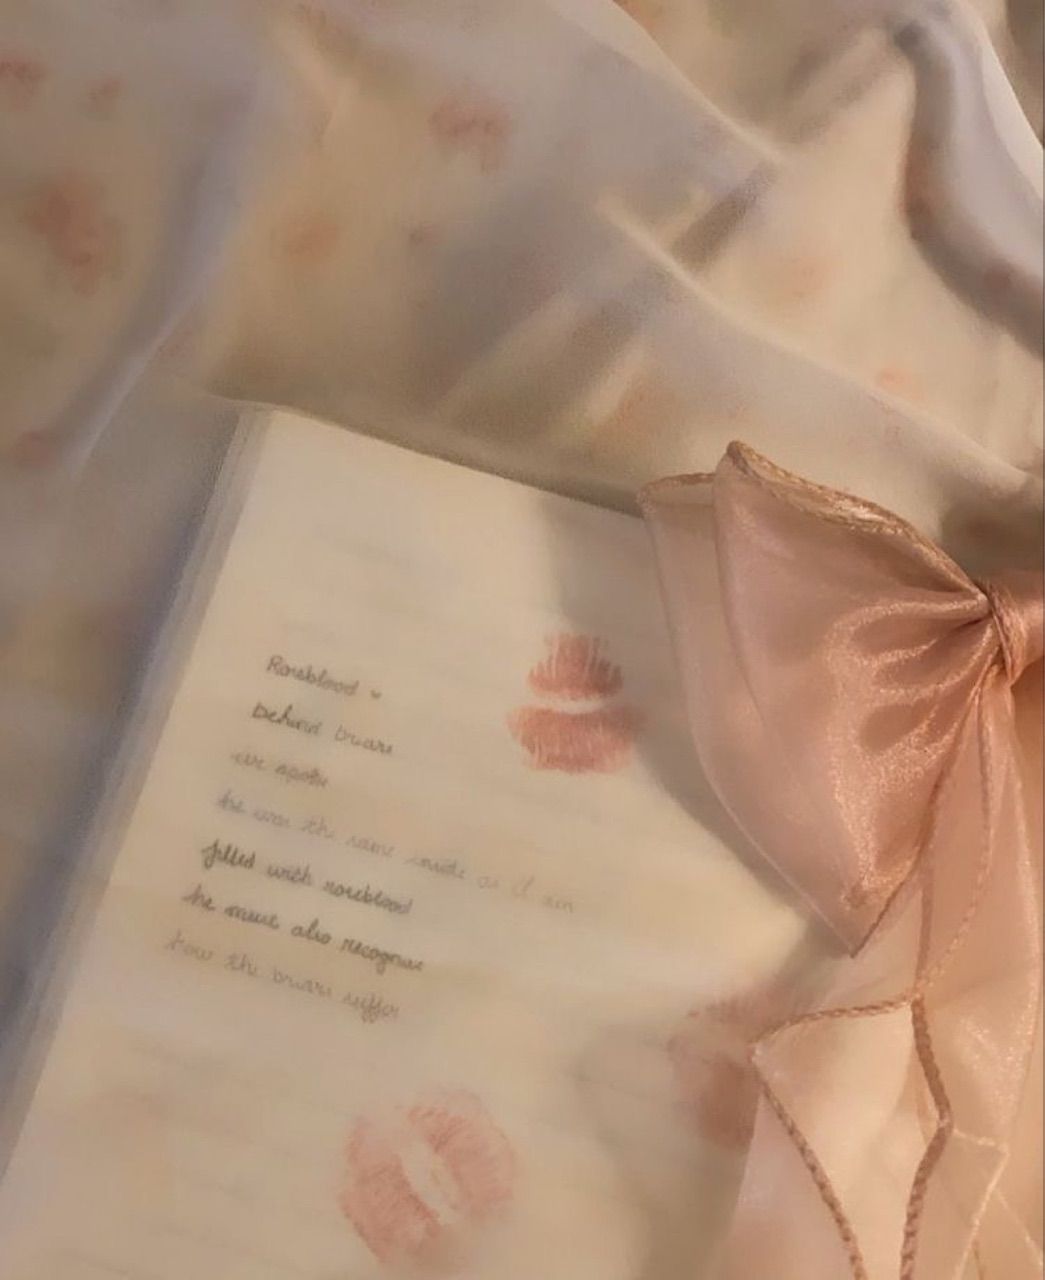 Roseblood
behind briars
we spoke
he was the same inside as I am
filled with roseblood
he must also recognize
how the briars suffer